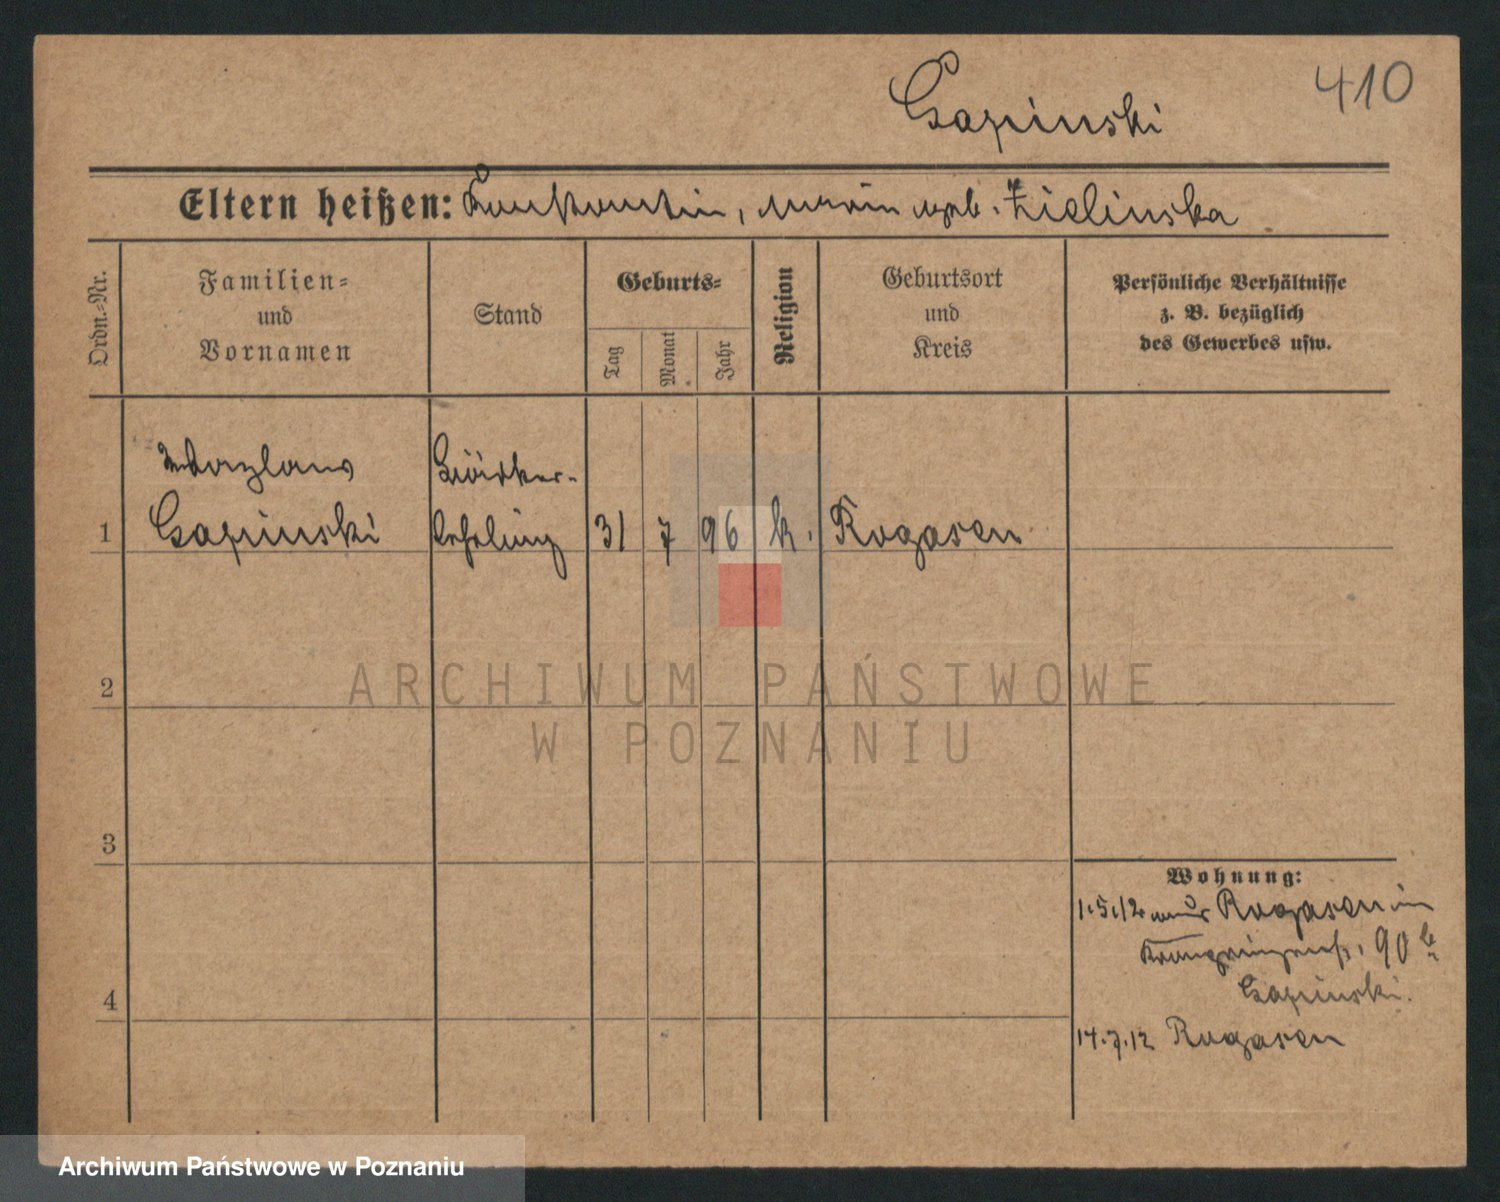 Gapinski
410
Eltern heißen: Konstantin, Maria geb. Zielinska
Ordn.-Nr.
Familien-
und
Vornamen
Stand
Geburts-
Tag
Monat
Jahr
Religion
Geburtsort
und
Kreis
Persönliche Verhältnisse
z. B. bezüglich
des Gewerbes usw.
Wazlaus
Gapinski
lehrling
1
31
7
96
k.
Rogasen
2
3
4
Wohnung:
1.5.12 aus Rogasen in
Kronprinzenstr. 90
Gapinski.
14.7.12 Rogasen
ARCHIWUM PAŃSTWOWE
W POZNANIU
Archiwum Państwowe w Poznaniu